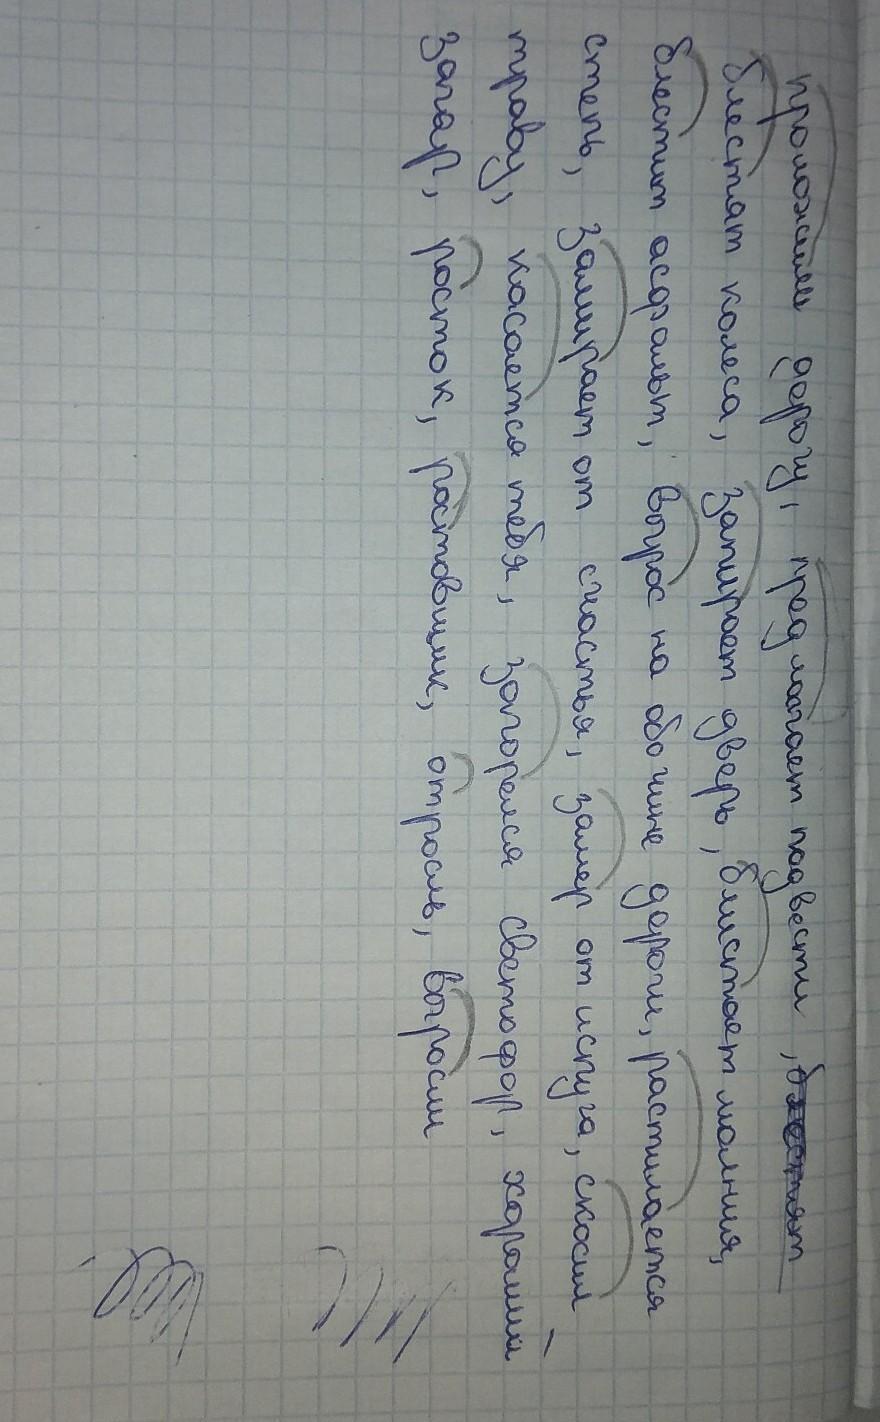 проложили дорогу, предлагает подвести, блестят
блестят колеса, запирает дверь, блистает молния,
блестит асфальт, вырос на обочине дороги, растилается
степь, замирает от счастья, замер от испуга, скосил
траву, касается тебя, загорелся светофор, хороший
загар, росток, ростовщик, отросль, выросли